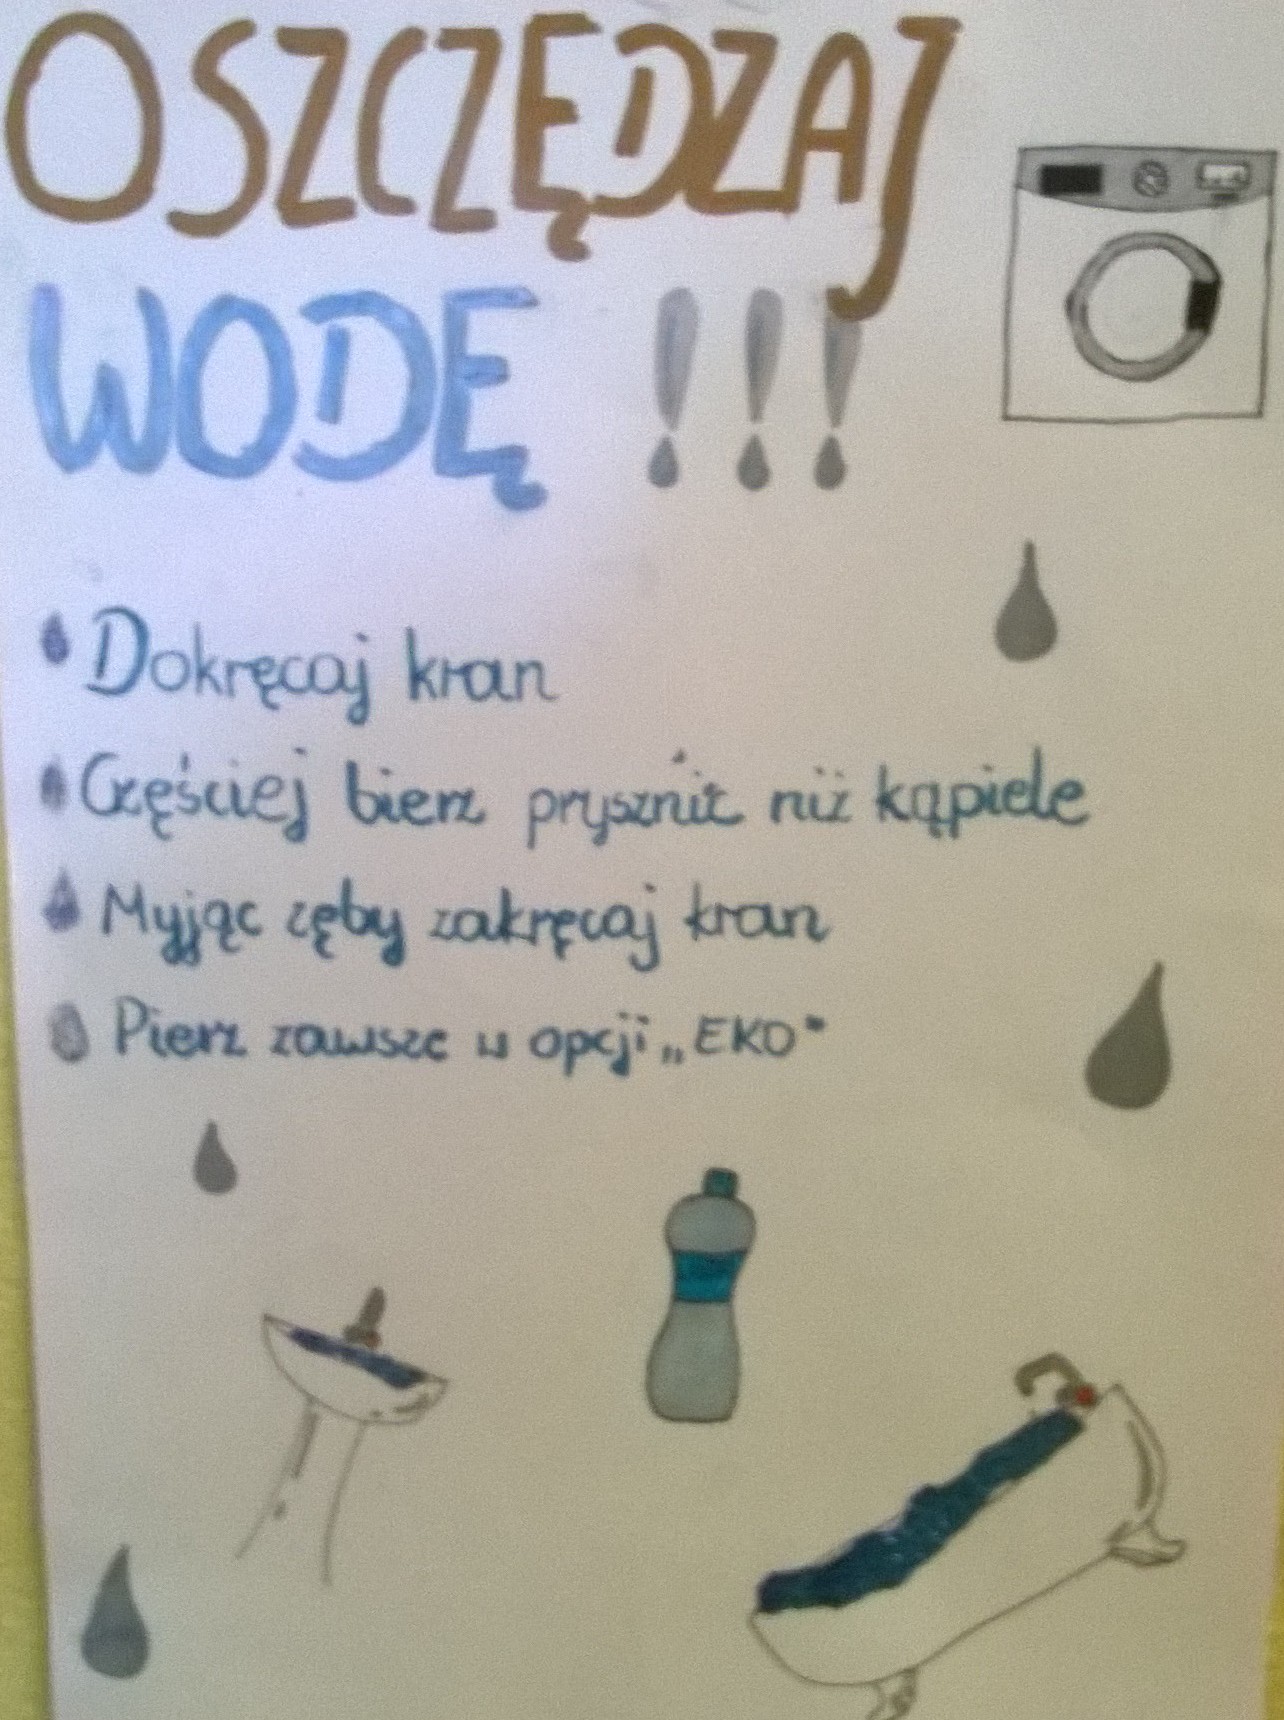 OSZCZĘDZAJ
WODĘ !!!
Dokręcaj kran
Częściej bierz prysznić niż kąpiele
Myjąc zęby zakręcaj kran
Pierz zawsze w opcji „EKO"